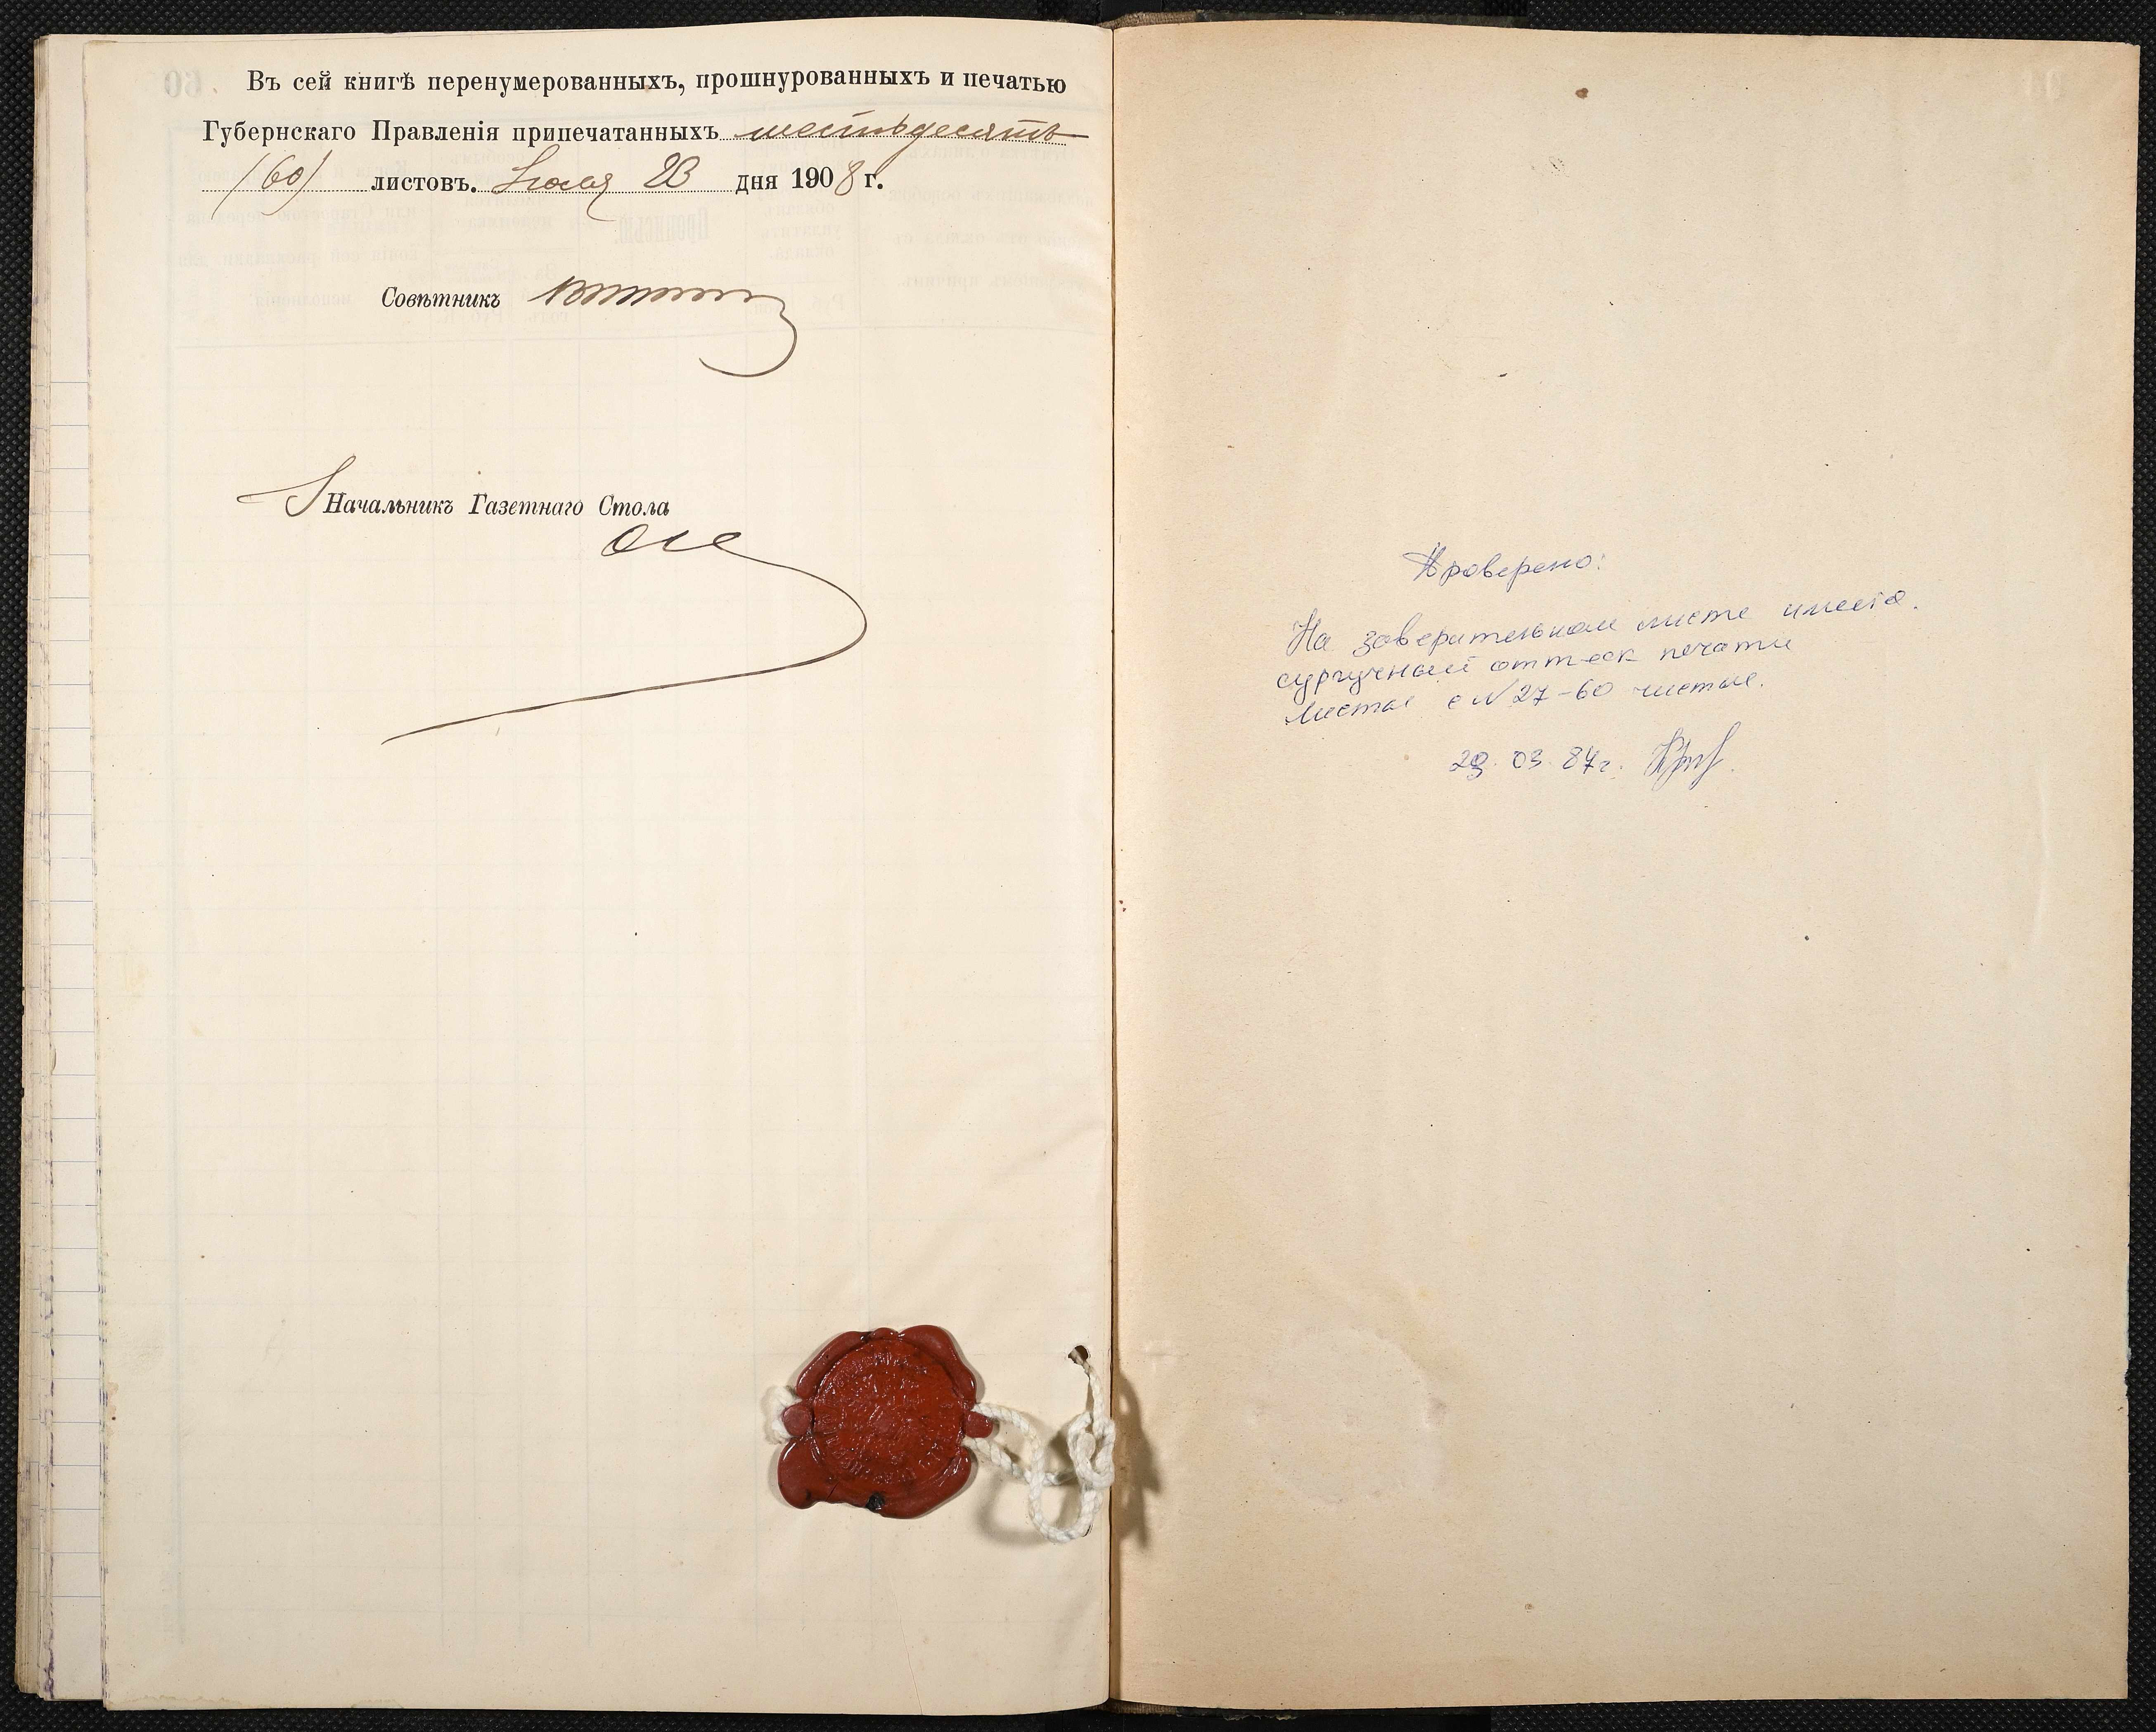 Въ сей книгѣ перенумерованныхъ, прошнурованныхъ и печатью
Губернскаго Правленія припечатанныхъ шестьдесятъ
(60) листовъ. Іюля 23 дня 1908 г.
Совѣтникъ
Начальникъ Газетнаго Стола
60
Проверено:
На заверительном листе имеется
сургучный оттиск печати
Листы с N 27-60 чистые.
03. 87г.